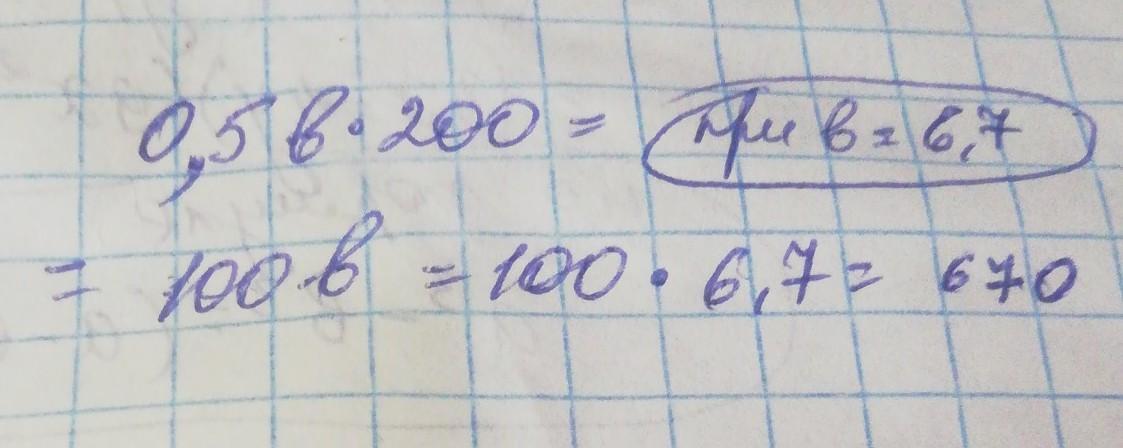 0,5 в · 200 = при в = 6,7
= 100 в = 100 · 6,7 = 670